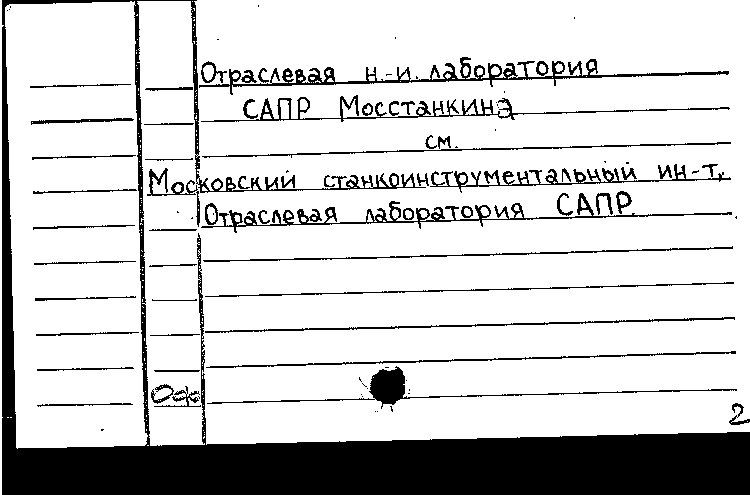 Отраслевая н.-и. лаборатория
САПР Мосстанкинэ
см.
Московский станкоинструментальный ин-т,
Отраслевая лаборатория САПР.
2